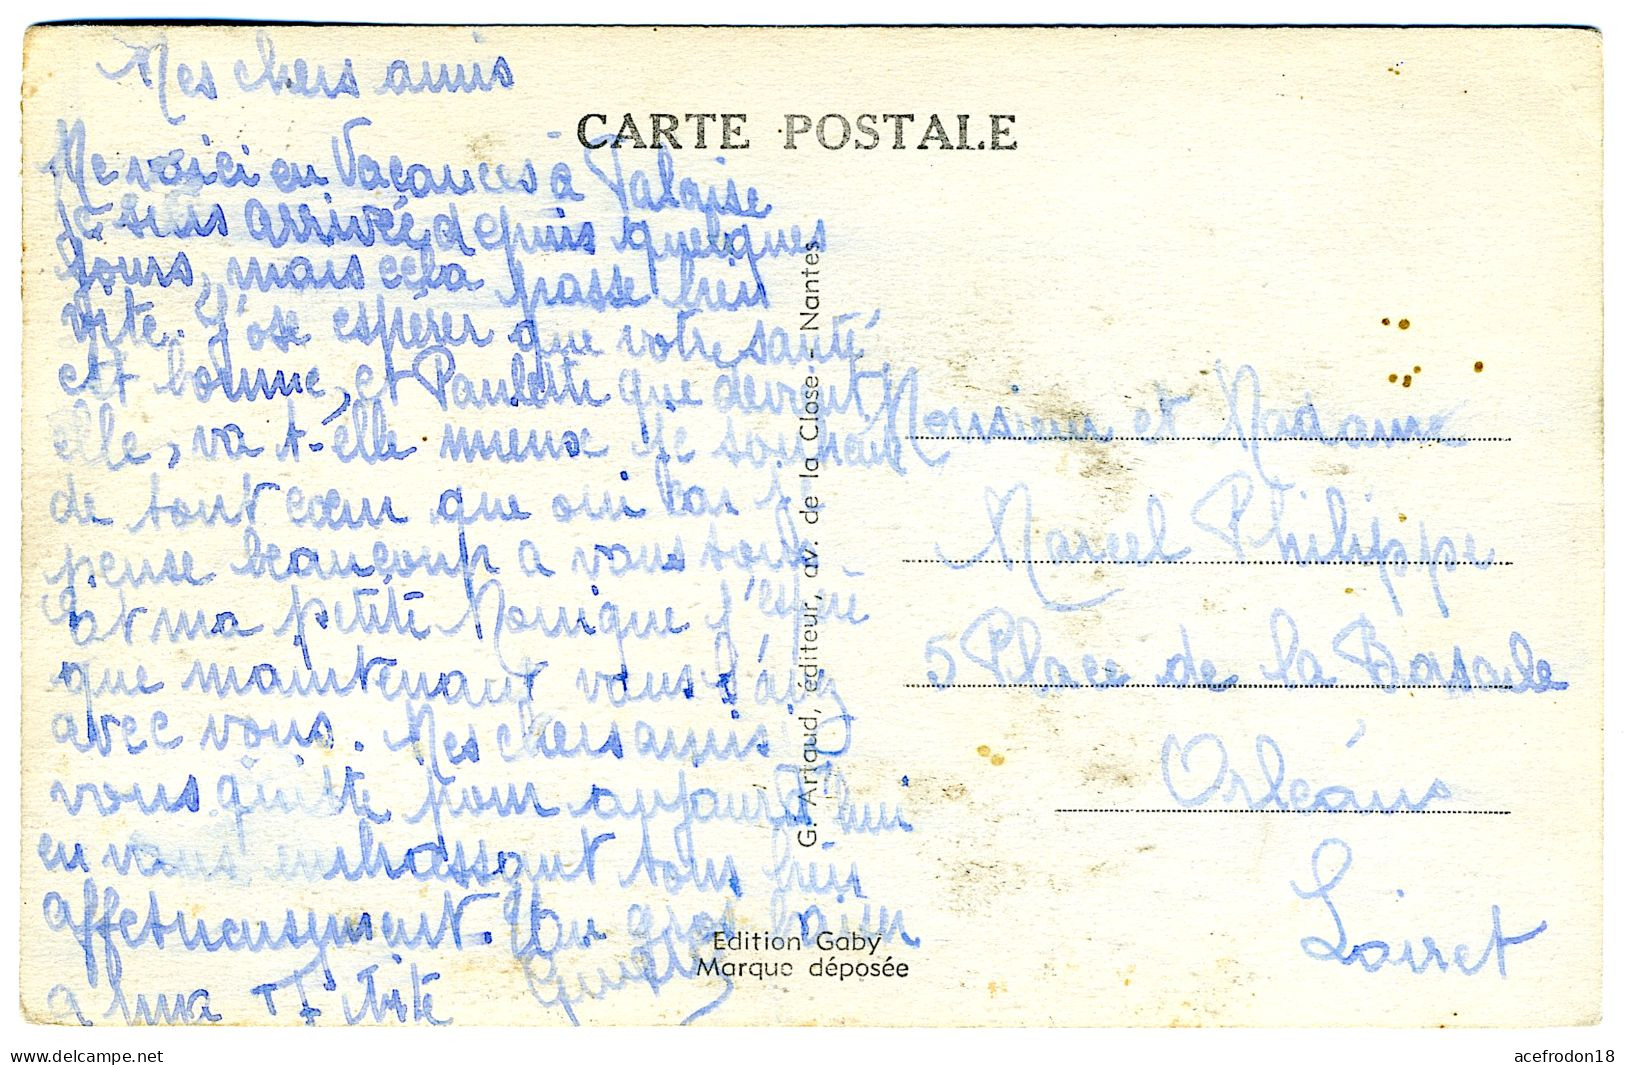 Mes chers amis
CARTE POSTALE
Me voici en Vacances à Falaise
je suis arrivée depuis quelques
jours, mais cela passe bien
vite. J'ose espérer que votre santé
est bonne, et Paulette que devient
elle, va t-elle mieux je souhaite
de tout cœur que oui car je
pense beaucoup a vous tous
et ma petite Monique j'espère
que maintenant vous l'avez
avec vous. Mes chers amis je
vous quitte pour aujourd'hui
en vous embrassant tous bien
affectueusement. Un gros baiser
a ma
Monsieur et Madame
Marcel Philippe
5 Place de la Bascule
Orléans
Loiret
G. Artaud, éditeur, av. de la Close - Nantes
Edition Gaby
Marque déposée
delcampe.net
acefrodon18